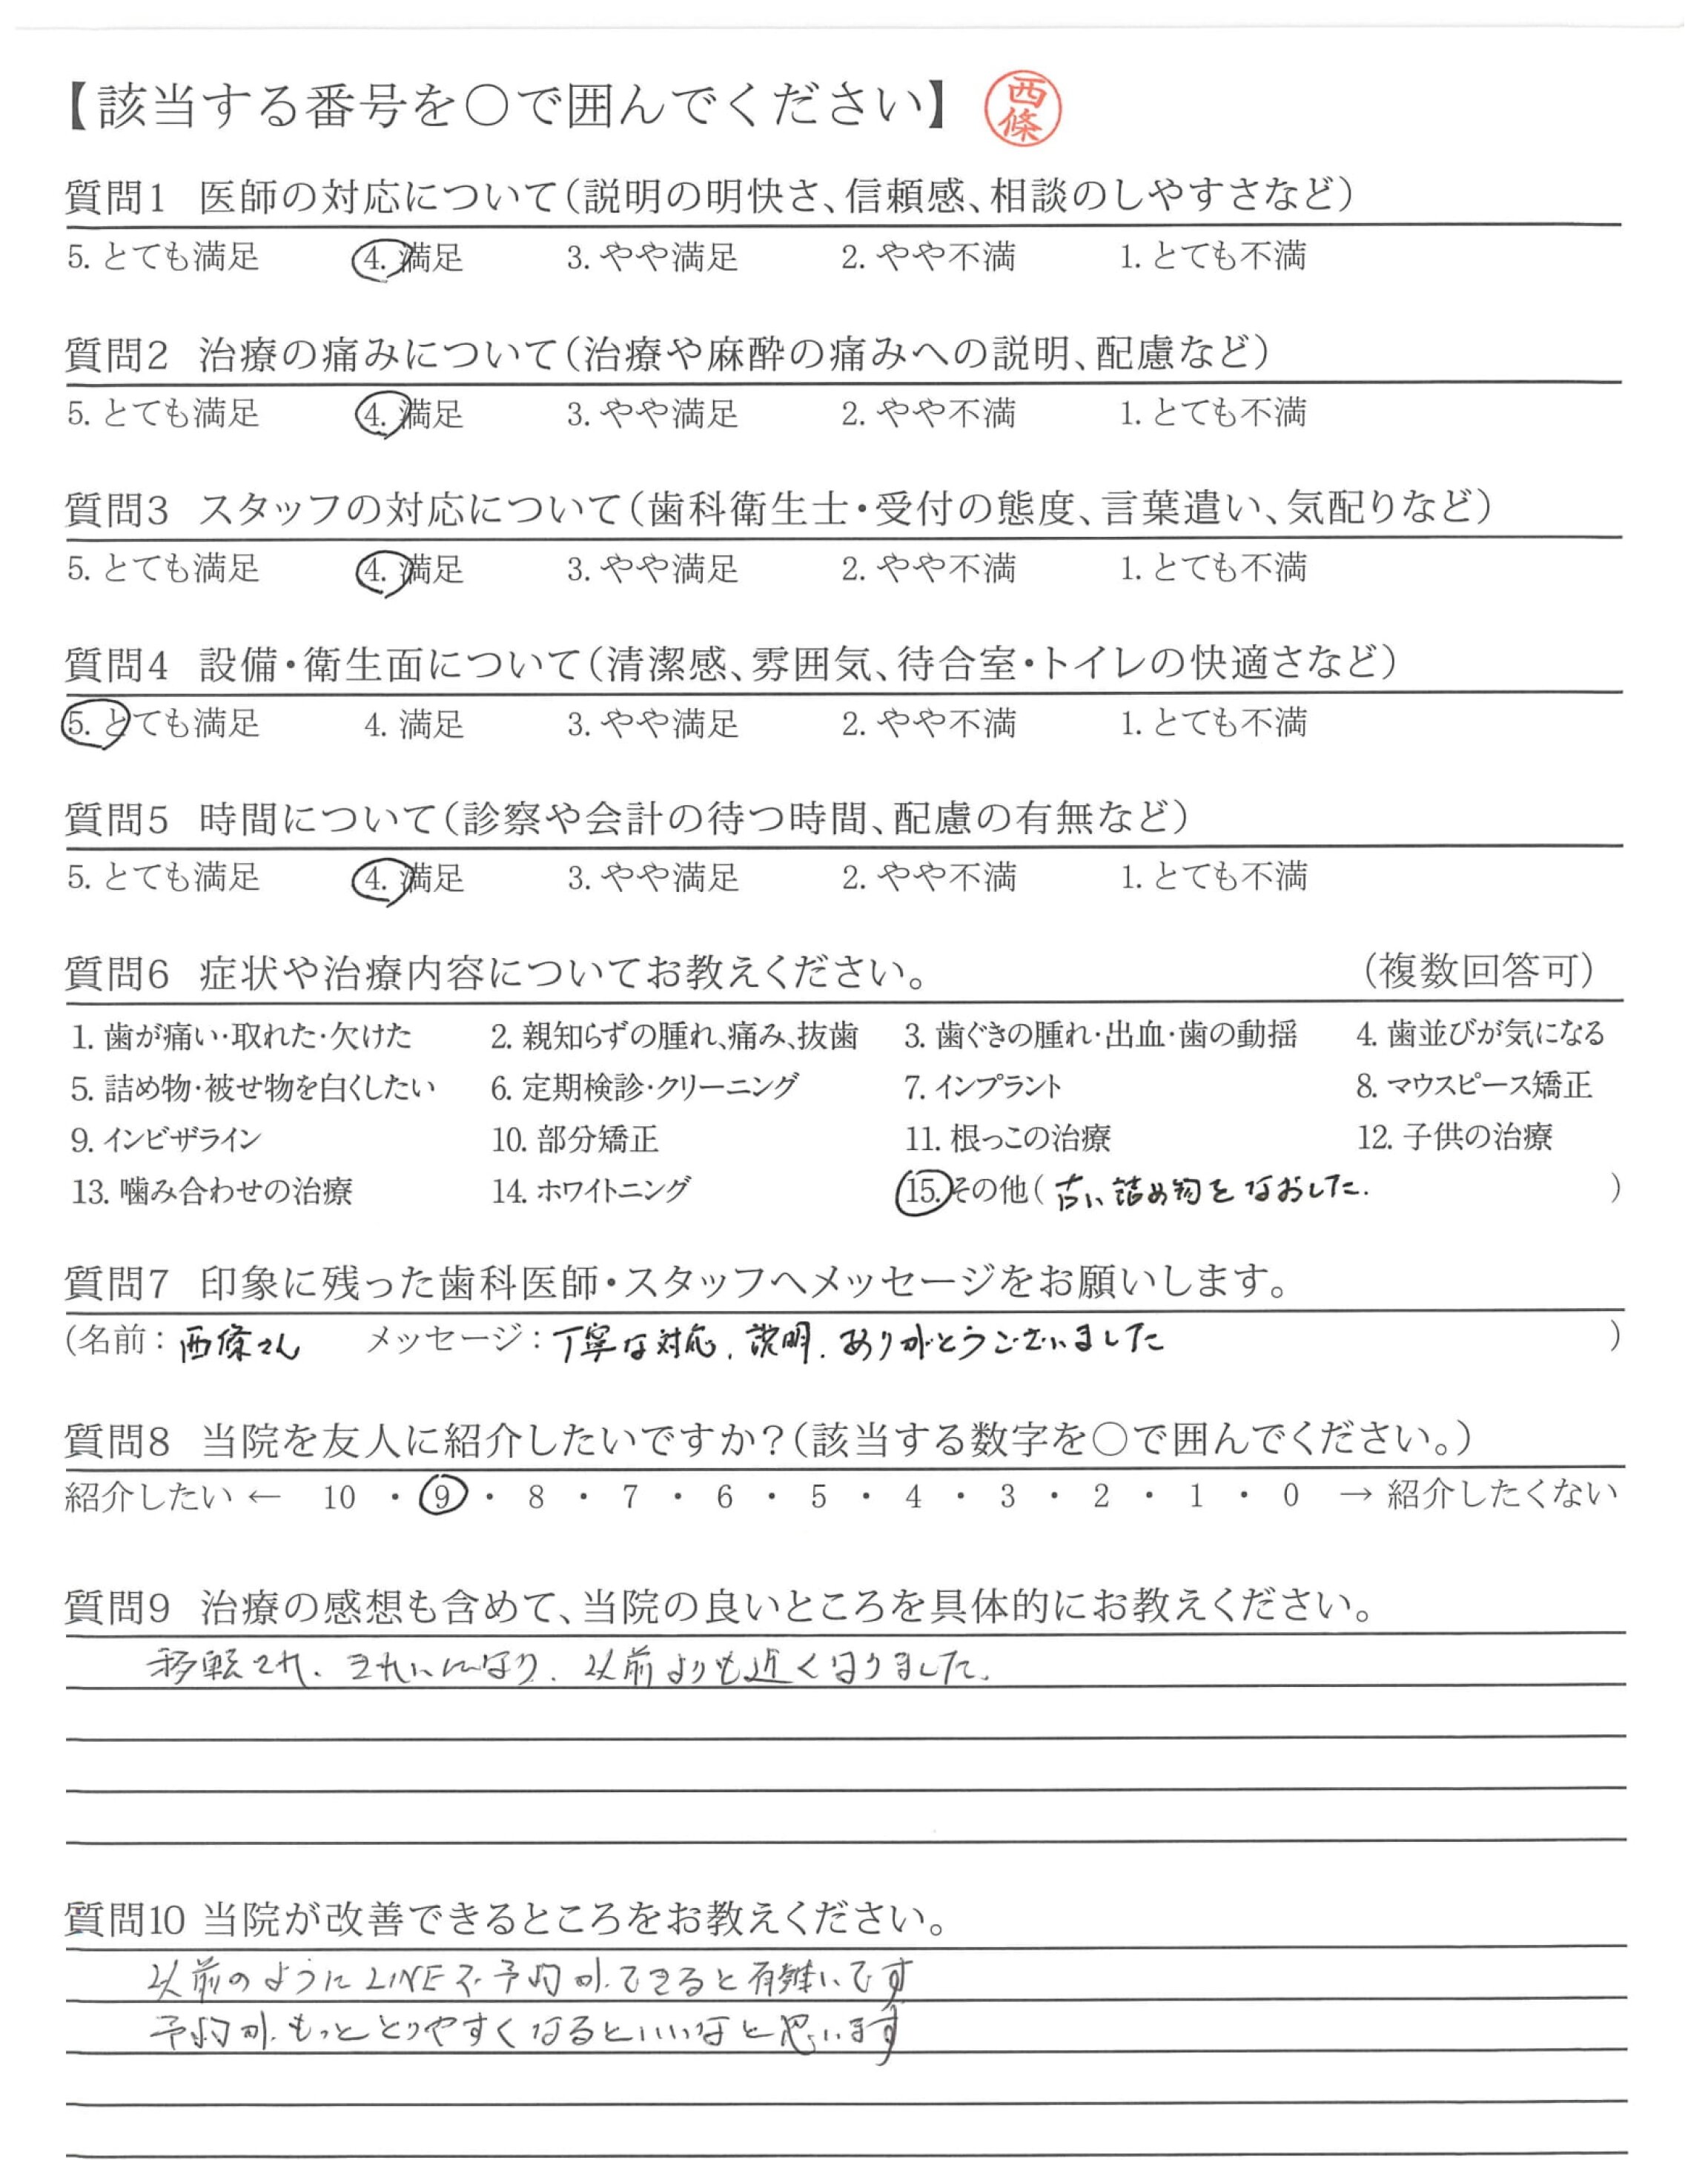 【該当する番号を〇で囲んでください】 西條
質問1 医師の対応について(説明の明快さ、信頼感、相談のしやすさなど)
5. とても満足 4. 満足 3. やや満足 2. やや不満 1. とても不満
質問2 治療の痛みについて(治療や麻酔の痛みへの説明、配慮など)
5. とても満足 4. 満足 3. やや満足 2. やや不満 1. とても不満
質問3 スタッフの対応について(歯科衛生士・受付の態度、言葉遣い、気配りなど)
5. とても満足 4. 満足 3. やや満足 2. やや不満 1. とても不満
質問4 設備・衛生面について(清潔感、雰囲気、待合室・トイレの快適さなど)
5. とても満足 4. 満足 3. やや満足 2. やや不満 1. とても不満
質問5 時間について(診察や会計の待つ時間、配慮の有無など)
5. とても満足 4. 満足 3. やや満足 2. やや不満 1. とても不満
質問6 症状や治療内容についてお教えください。 (複数回答可)
1. 歯が痛い・取れた・欠けた 2. 親知らずの腫れ、痛み、抜歯 3. 歯ぐきの腫れ・出血・歯の動揺 4. 歯並びが気になる
5. 詰め物・被せ物を白くしたい 6. 定期検診・クリーニング 7. インプラント 8. マウスピース矯正
9. インビザライン 10. 部分矯正 11. 根っこの治療 12. 子供の治療
13. 噛み合わせの治療 14. ホワイトニング 15. その他( 古い詰め物をなおした. )
質問7 印象に残った歯科医師・スタッフへメッセージをお願いします。
(名前: 西條さん メッセージ: 丁寧な対応、説明、ありがとうございました )
質問8 当院を友人に紹介したいですか?(該当する数字を〇で囲んでください。)
紹介したい ← 10 ・ 9 ・ 8 ・ 7 ・ 6 ・ 5 ・ 4 ・ 3 ・ 2 ・ 1 ・ 0 → 紹介したくない
質問9 治療の感想も含めて、当院の良いところを具体的にお教えください。
移転され、きれいになり、以前よりも近くなりました。
質問10 当院が改善できるところをお教えください。
以前のようにLINEで予約ができると有難いです
予約が、もっととりやすくなるといいなと思います